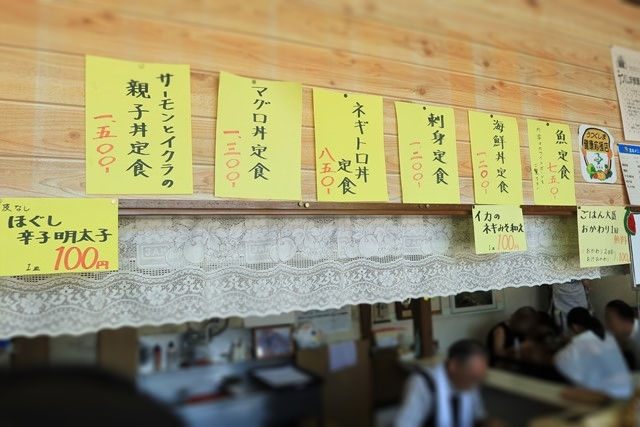 サーモンとイクラの
親子丼定食
一、五〇〇-
マグロ丼定食
一、三〇〇-
ネギトロ丼
定食
八五〇-
刺身定食
一二〇〇-
海鮮丼定食
一二〇〇-
魚定食
七五〇-
皮なし
ほぐし
辛子明太子
1皿 100円
イカの
ネギみそ和え
1皿 100円
ごはん大盛
おかわり1回